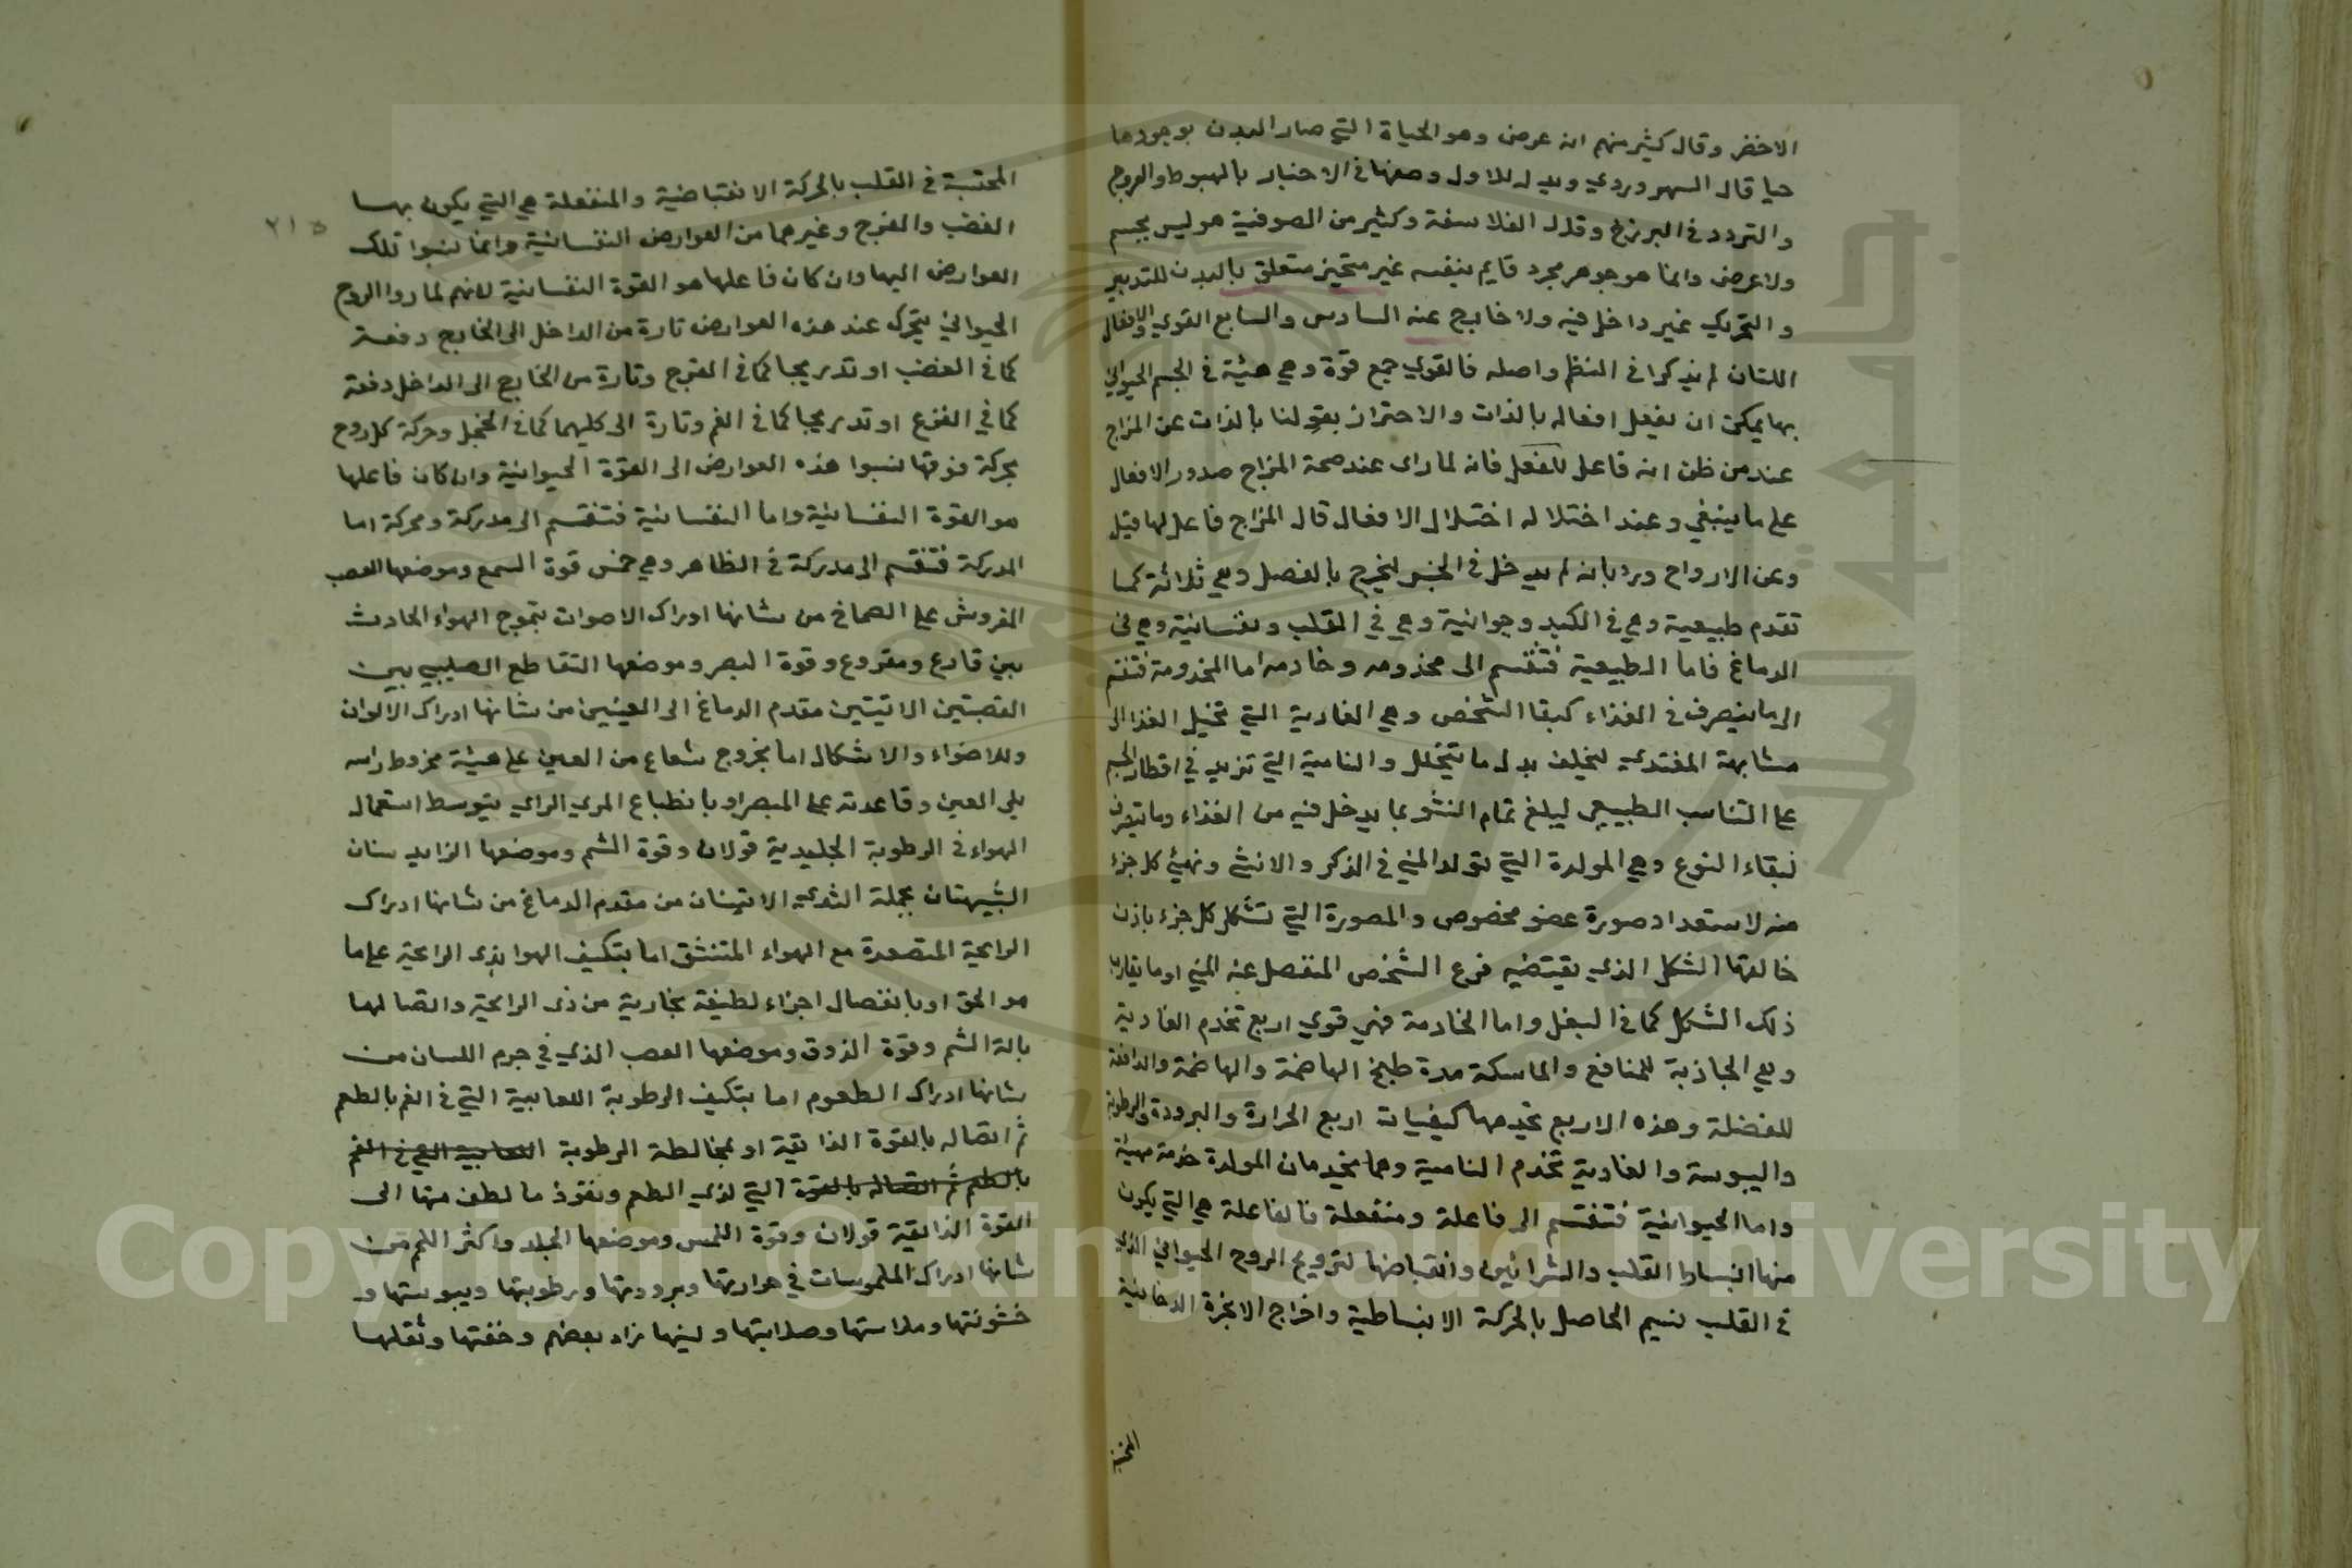 الاخضر وقال كثير منهم انه عرض وهو الحياة التي صار البدن بوجودها
حيا قال السهروردي ويدل للاول وصفها في الاخبار بالهبوط والعروج
والتردد في البرزخ وقال الفلاسفة وكثير من الصوفية هو ليس بجسم
ولا عرض وانما هو جوهر مجرد قايم بنفسه غير متحيز متعلق بالبدن للتدبير
والتحريك غير داخل فيه ولا خارج عنه السادس والسابع القوي والافعال
اللتان لم يذكرا في النظم واصله فالقوي جمع قوة وهي هيئة في الجسم الحيواني
بها يمكن ان يفعل افعاله بالذات والاحتراز بقولنا بالذات عن المزاج
عند من ظن انه فاعل للفعل فانه لما راى عند صحة المزاج صدور الافعال
على ما ينبغي وعند اختلاله اختلال الافعال قال المزاج فاعل لها قيل
وعن الارواح ورد بانه لم يدخل في الجنس ليخرج بالفصل وهي ثلاثة كما
تقدم طبيعية وهي في الكبد وحيوانية وهي في القلب ونفسانية وهي في
الدماغ فاما الطبيعية فتنقسم الى مخدومه وخادمه اما المخدومة فتنقسم
الى ما يتصرف في الغذاء كبقا الشخص وهي الغاذية التي تحيل الغذا الى
مشابهة المغتذي لتخلف بدل ما يتحلل والنامية التي تزيد في اقطار الجسم
على التناسب الطبيعي ليبلغ تمام النشو بما يدخل فيه من الغذاء وما يتصرف
لبقاء النوع وهي المولدة التي تولد المني في الذكر والانثى وتهيئ كل جزء
منه لاستعداد صورة عضو مخصوص والمصورة التي تشكل كل جزء باذن
خالقها الشكل الذي يقتضيه فرع الشخص المنفصل عنه المني او ما يقارب
ذلك الشكل كما في البغل واما الخادمة فهي قوي اربع تخدم الغاذية
وهي الجاذبة للمنافع والماسكة مدة طبخ الهاضمة والهاضمة والدافعة
للفضلة وهذه الاربع تخدمها كيفيات اربع الحرارة والبرودة والرطوبة
واليبوسة والغاذية تخدم النامية وهما يخدمان المولدة خدمة مهيئة
واما الحيوانية فتنقسم الى فاعلة ومنفعلة فالفاعلة هي التي يكون
منها انبساط القلب والشرائين وانقباضها لترويح الروح الحيواني الذي
في القلب نسيم الحاصل بالحركة الانبساطية واخراج الابخرة الدخانية
٢١٥
المحتبسة في القلب بالحركة الانقباضية والمنفعلة هي التي يكون بها
الغضب والفرح وغيرهما من العوارض النفسانية وانما نسبوا تلك
العوارض اليها وان كان فاعلها هو القوة النفسانية لانهم لما راوا الروح
الحيواني يتحرك عند هذه العوارض تارة من الداخل الى الخارج دفعة
كما في الغضب او تدريجا كما في الفرح وتارة من الخارج الى الداخل دفعة
كما في الفزع او تدريجا كما في الغم وتارة الى كليهما كما في الخجل وحركة كل روح
بحركة قوتها نسبوا هذه العوارض الى القوة الحيوانية وان كان فاعلها
هو القوة النفسانية واما النفسانية فتنقسم الى مدركة ومحركة اما
المدركة فتنقسم الى مدركة في الظاهر وهي خمس قوة السمع وموضعها العصب
المفروش على الصماخ من شانها ادراك الاصوات بتموج الهواء الحادث
بين قارع ومقروع وقوة البصر وموضعها التقاطع الصليبي بين
القصبتين الاتيتين مقدم الدماغ الى العينين من شانها ادراك الالوان
وللاضواء والاشكال اما بخروج شعاع من العين على هيئة مخروط راسه
يلي العين وقاعدته على المبصر او بانطباع المري الراي بتوسط استعمال
الهواء في الرطوبة الجليدية قولان وقوة الشم وموضعها الزايدتان
الشبيهتان بحلمة الثدي الاتيتان من مقدم الدماغ من شانها ادراك
الرايحة المتصعدة مع الهواء المتنشق اما بتكيف الهوا بذى الرايحة على ما
هو الحق او بانفصال اجزاء لطيفة بخارية من ذى الرايحة واتصالها
بالة الشم وقوة الذوق وموضعها العصب الذي في جرم اللسان من
شانها ادراك الطعوم اما بتكيف الرطوبة اللعابية التي في الفم بالطعم
ثم اتصاله بالقوة الذائقة او بمخالطة الرطوبة اللعابية التي في الفم
بالطعم ثم اتصاله بالقوة التي لذي الطعم ونفوذ ما لطف منها الى
القوة الذائقية قولان وقوة اللمس وموضعها الجلد واكثر اللحم من
شانها ادراك الملموسات في حرارتها وبرودتها ورطوبتها ويبوستها و
خشونتها وملاستها وصلابتها ولينها زاد بعضهم وخفتها وثقلها